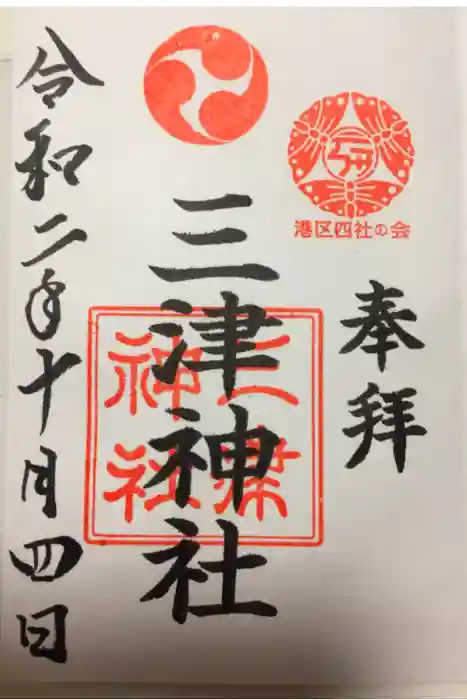 港区四社の会
奉拝
三津神社
三
神社
令和二年十月四日